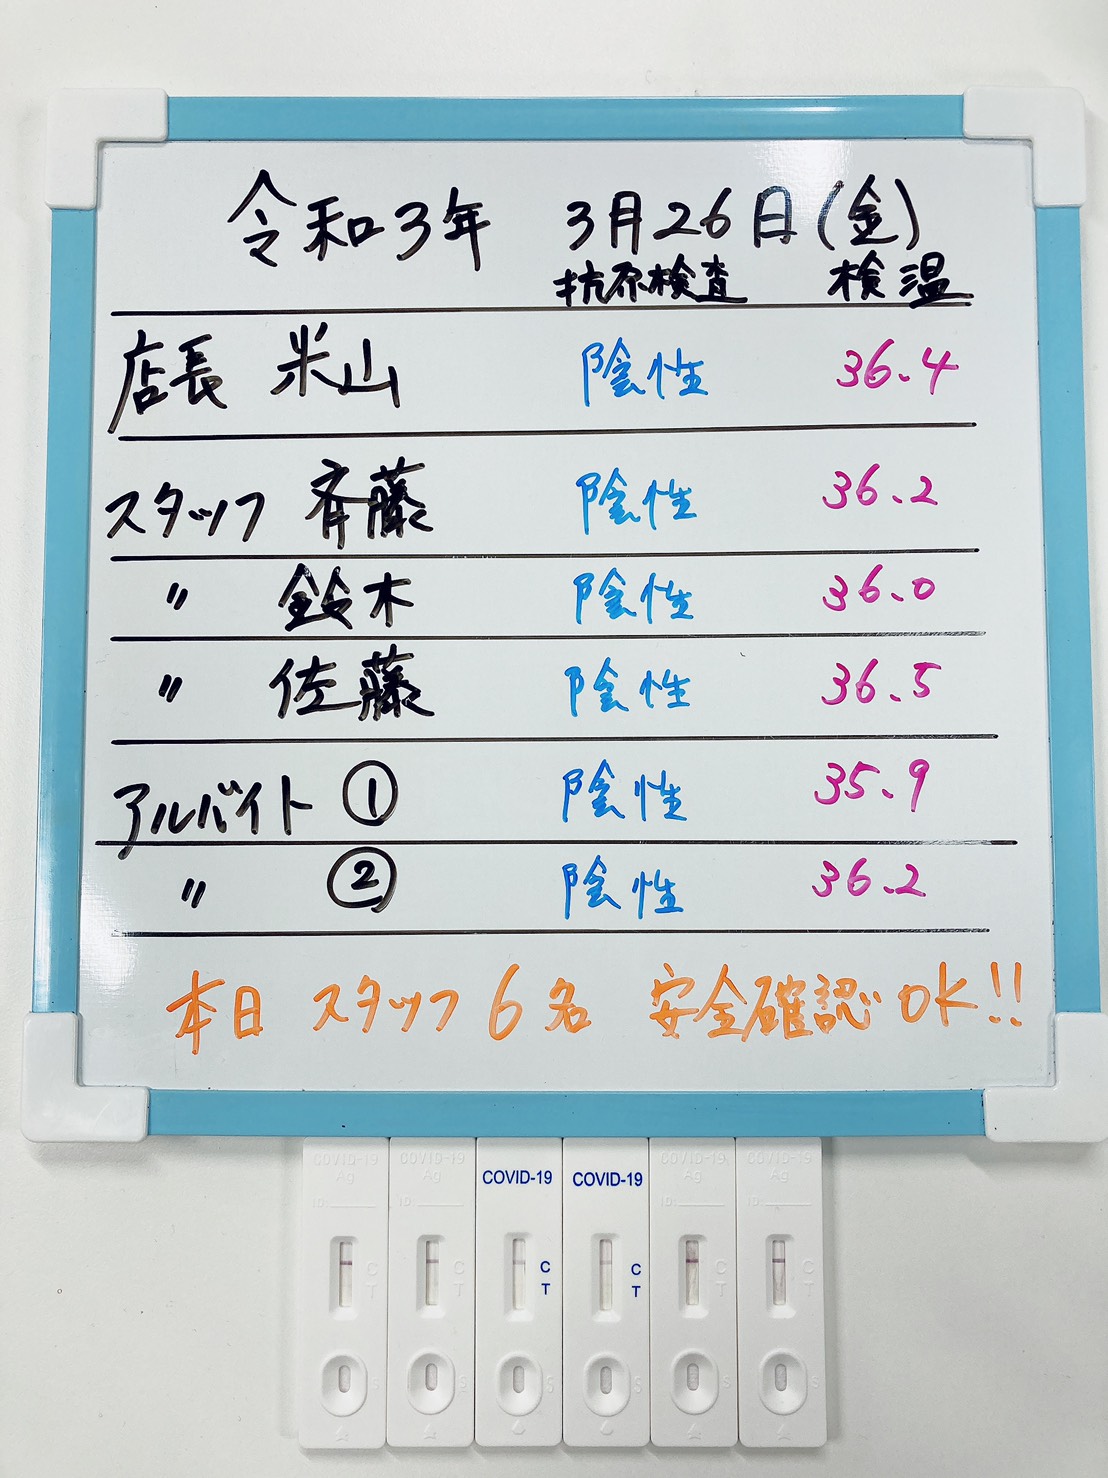 令和3年 3月26日(金)
抗原検査 検温
店長 米山 陰性 36.4
スタッフ 斉藤 陰性 36.2
〃 鈴木 陰性 36.0
〃 佐藤 陰性 36.5
アルバイト ① 陰性 35.9
〃 ② 陰性 36.2
本日 スタッフ 6名 安全確認OK!!
COVID-19 COVID-19 COVID-19 COVID-19 COVID-19 COVID-19
Ag Ag Ag Ag
ID: ID: ID: ID:
C C C C C C
T T T T T T
S S S S S S